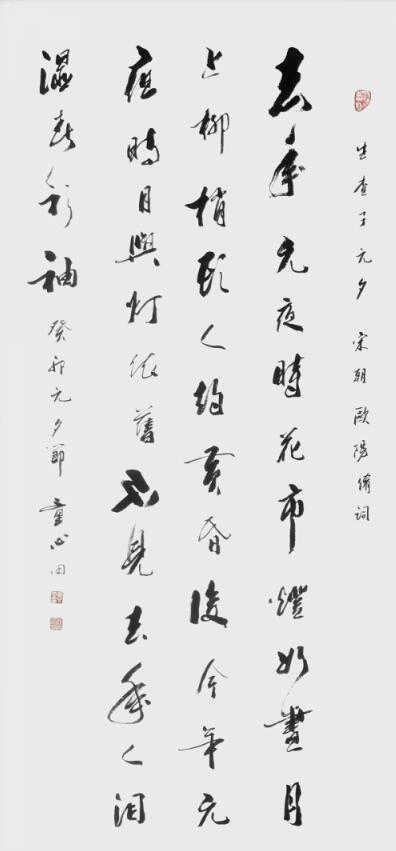 生查子元夕 宋朝欧陽脩词
去年元夜時花市燈如晝月
上柳梢頭人约黄昏後今年元
夜時月與灯依舊不見去年人泪
濕春衫袖 癸卯元夕節 童心田